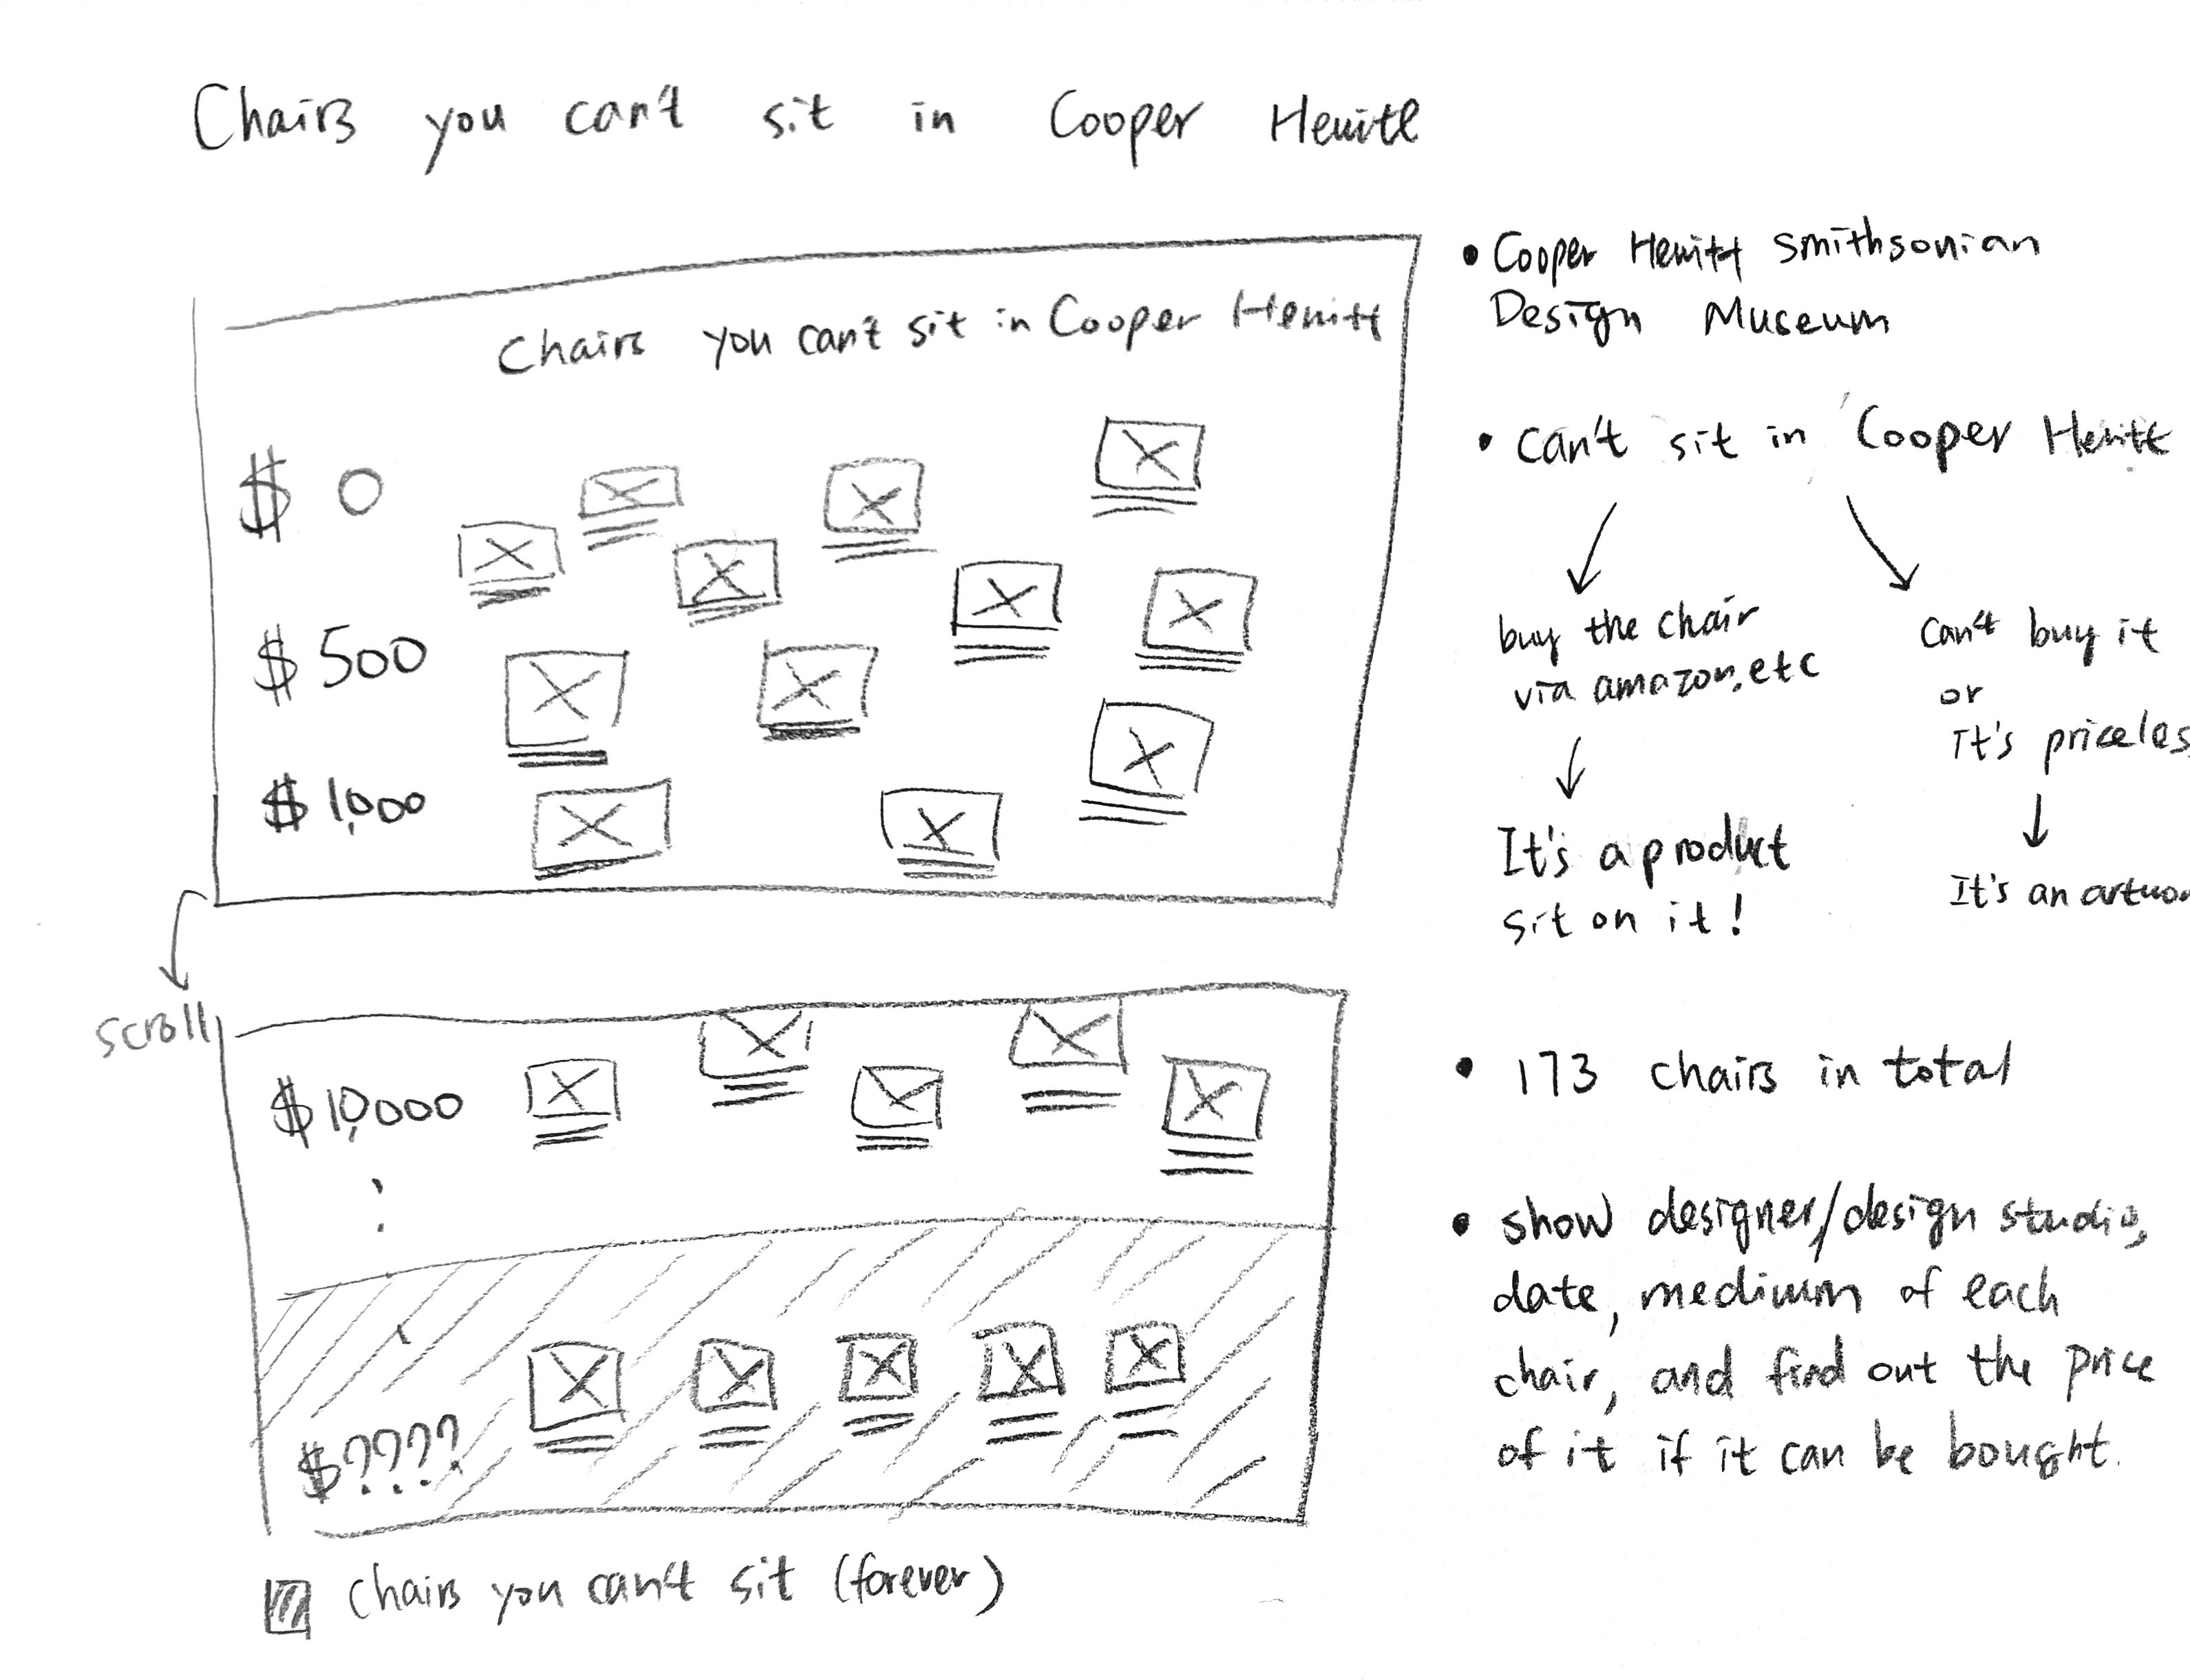 Chairs you can't sit in Cooper Hewitt
Chairs you can't sit in Cooper Hewitt
$ 0
$ 500
$ 1,000
scroll
$ 10,000
$ ????
chairs you can't sit (forever)
• Cooper Hewitt Smithsonian
Design Museum
• can't sit in Cooper Hewitt
buy the chair
via amazon, etc
It's a product
sit on it!
can't buy it
or
It's priceles
It's an artwo
• 173 chairs in total
• show designer/design studio,
date, medium of each
chair, and find out the price
of it if it can be bought.